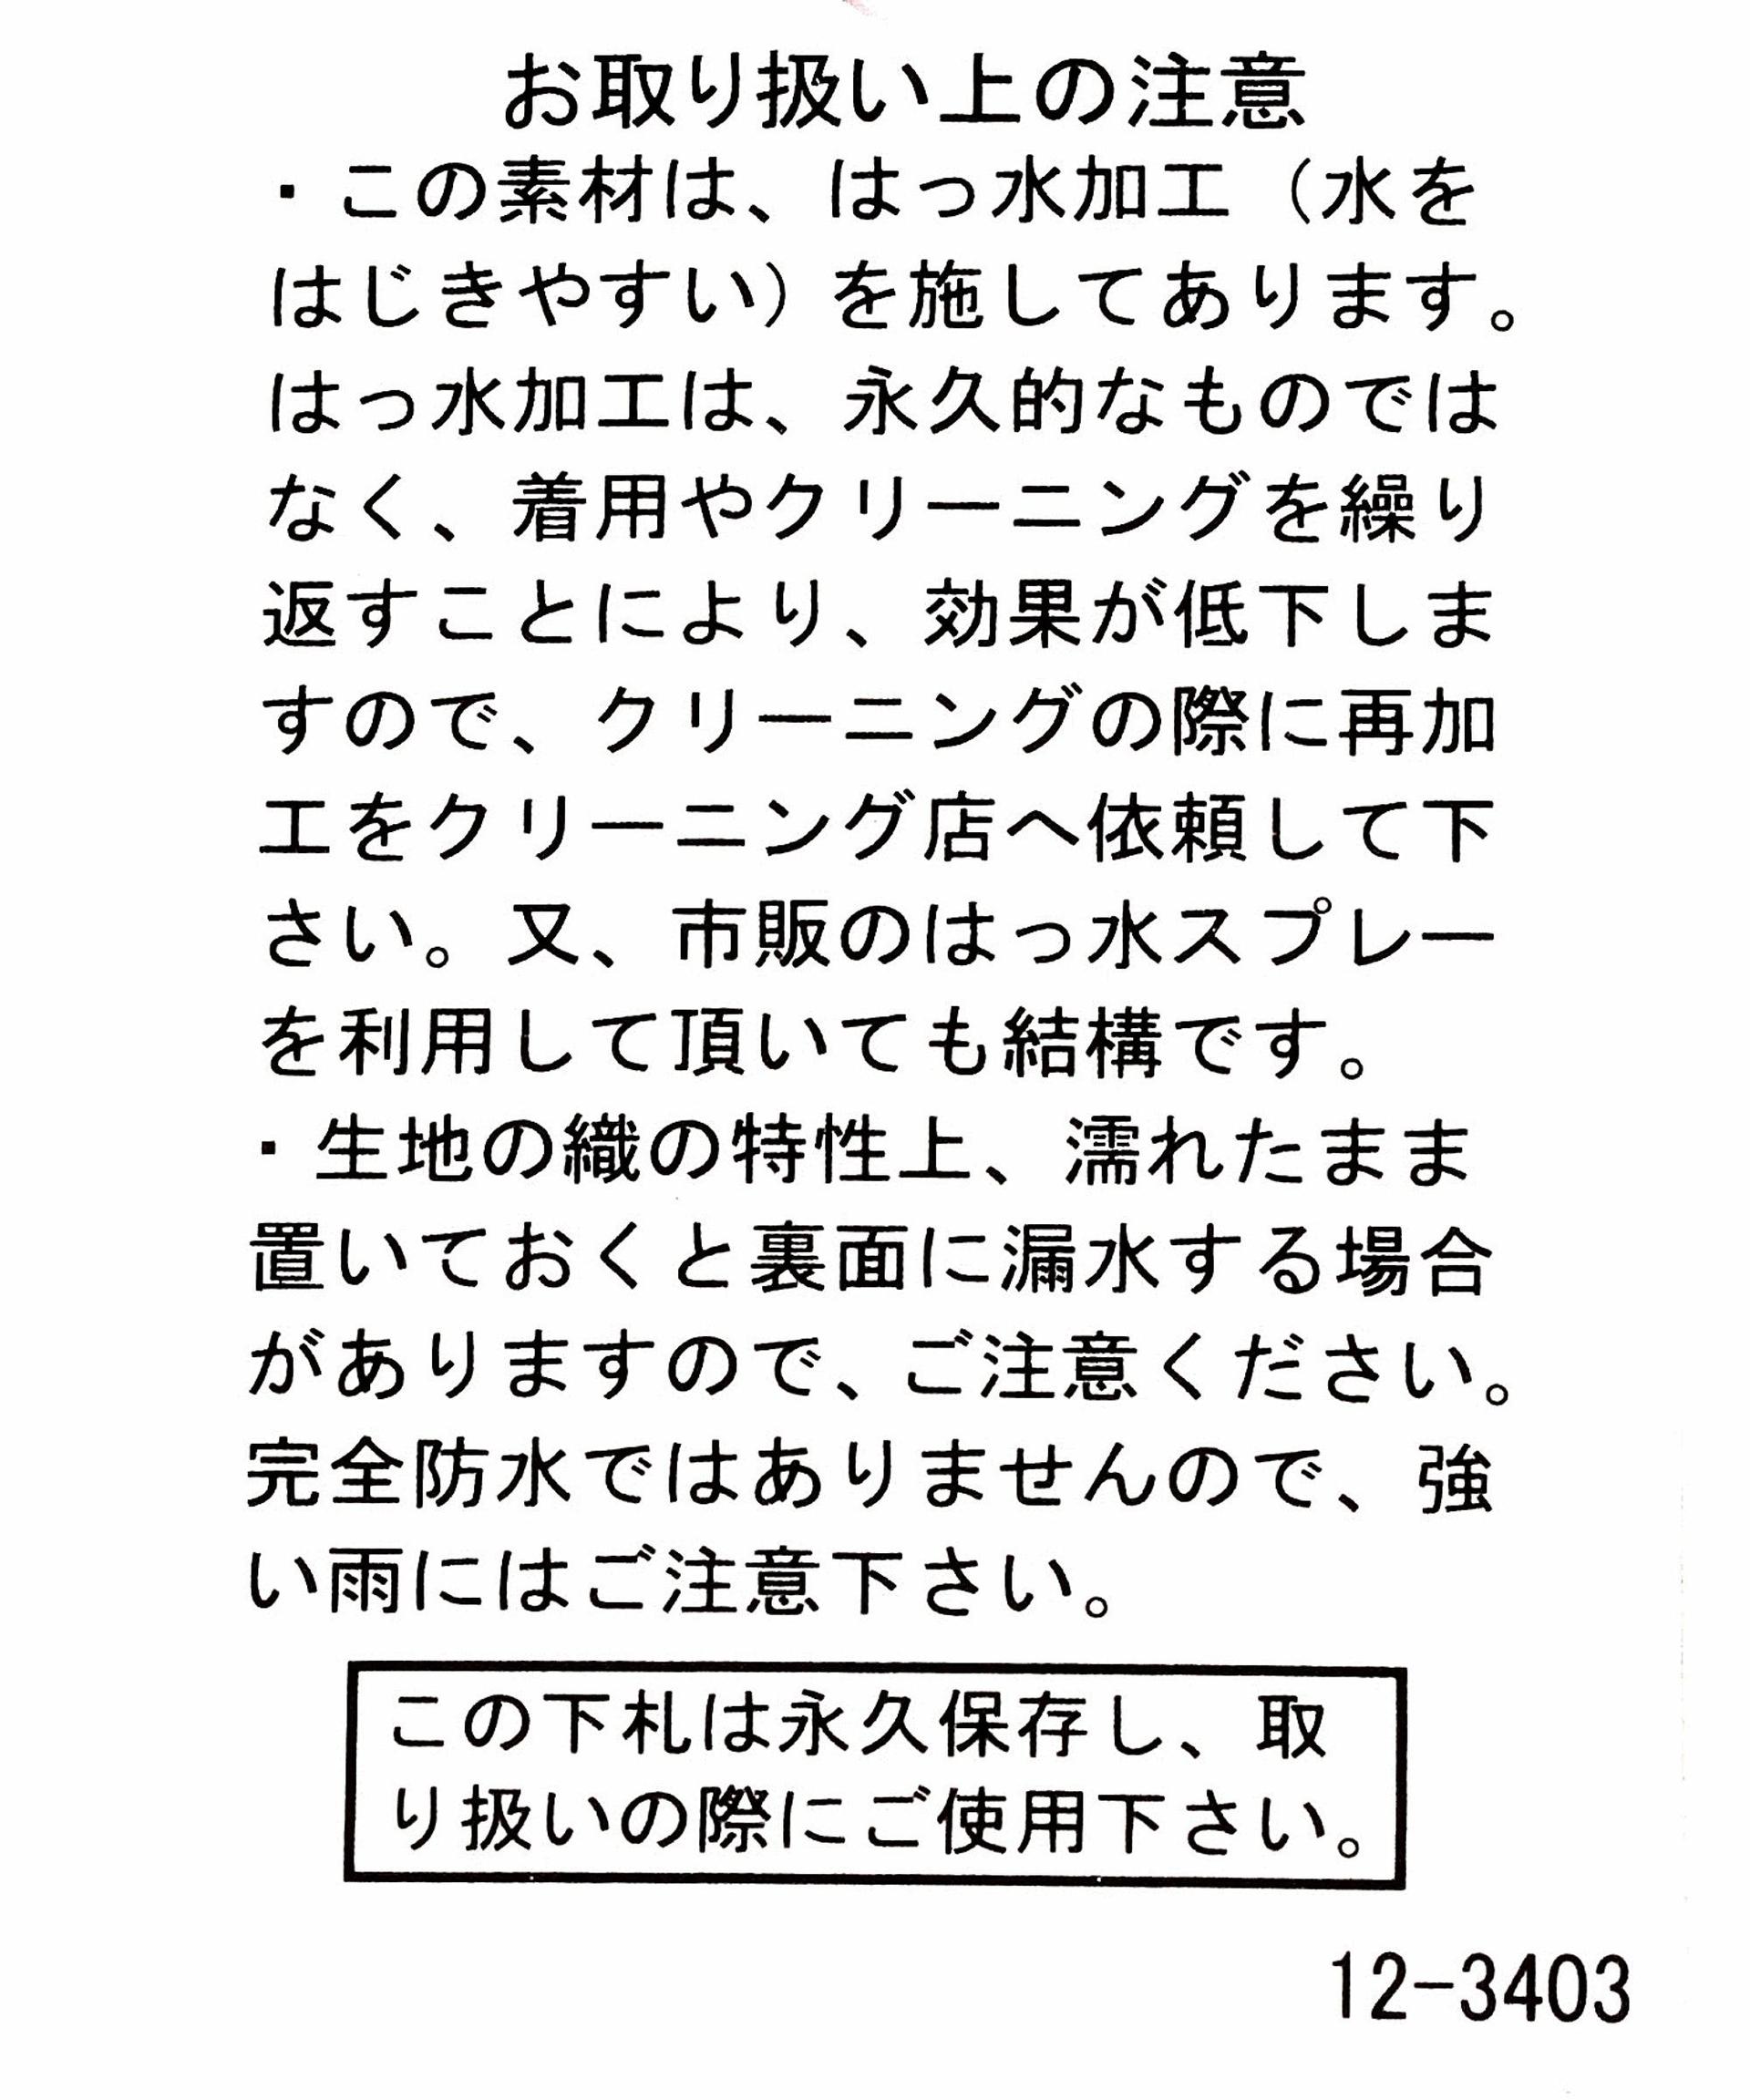 お取り扱い上の注意
・この素材は、はっ水加工（水を
はじきやすい）を施してあります。
はっ水加工は、永久的なものでは
なく、着用やクリーニングを繰り
返すことにより、効果が低下しま
すので、クリーニングの際に再加
工をクリーニング店へ依頼して下
さい。又、市販のはっ水スプレー
を利用して頂いても結構です。
・生地の織の特性上、濡れたまま
置いておくと裏面に漏水する場合
がありますので、ご注意ください。
完全防水ではありませんので、強
い雨にはご注意下さい。
この下札は永久保存し、取
り扱いの際にご使用下さい。
12-3403